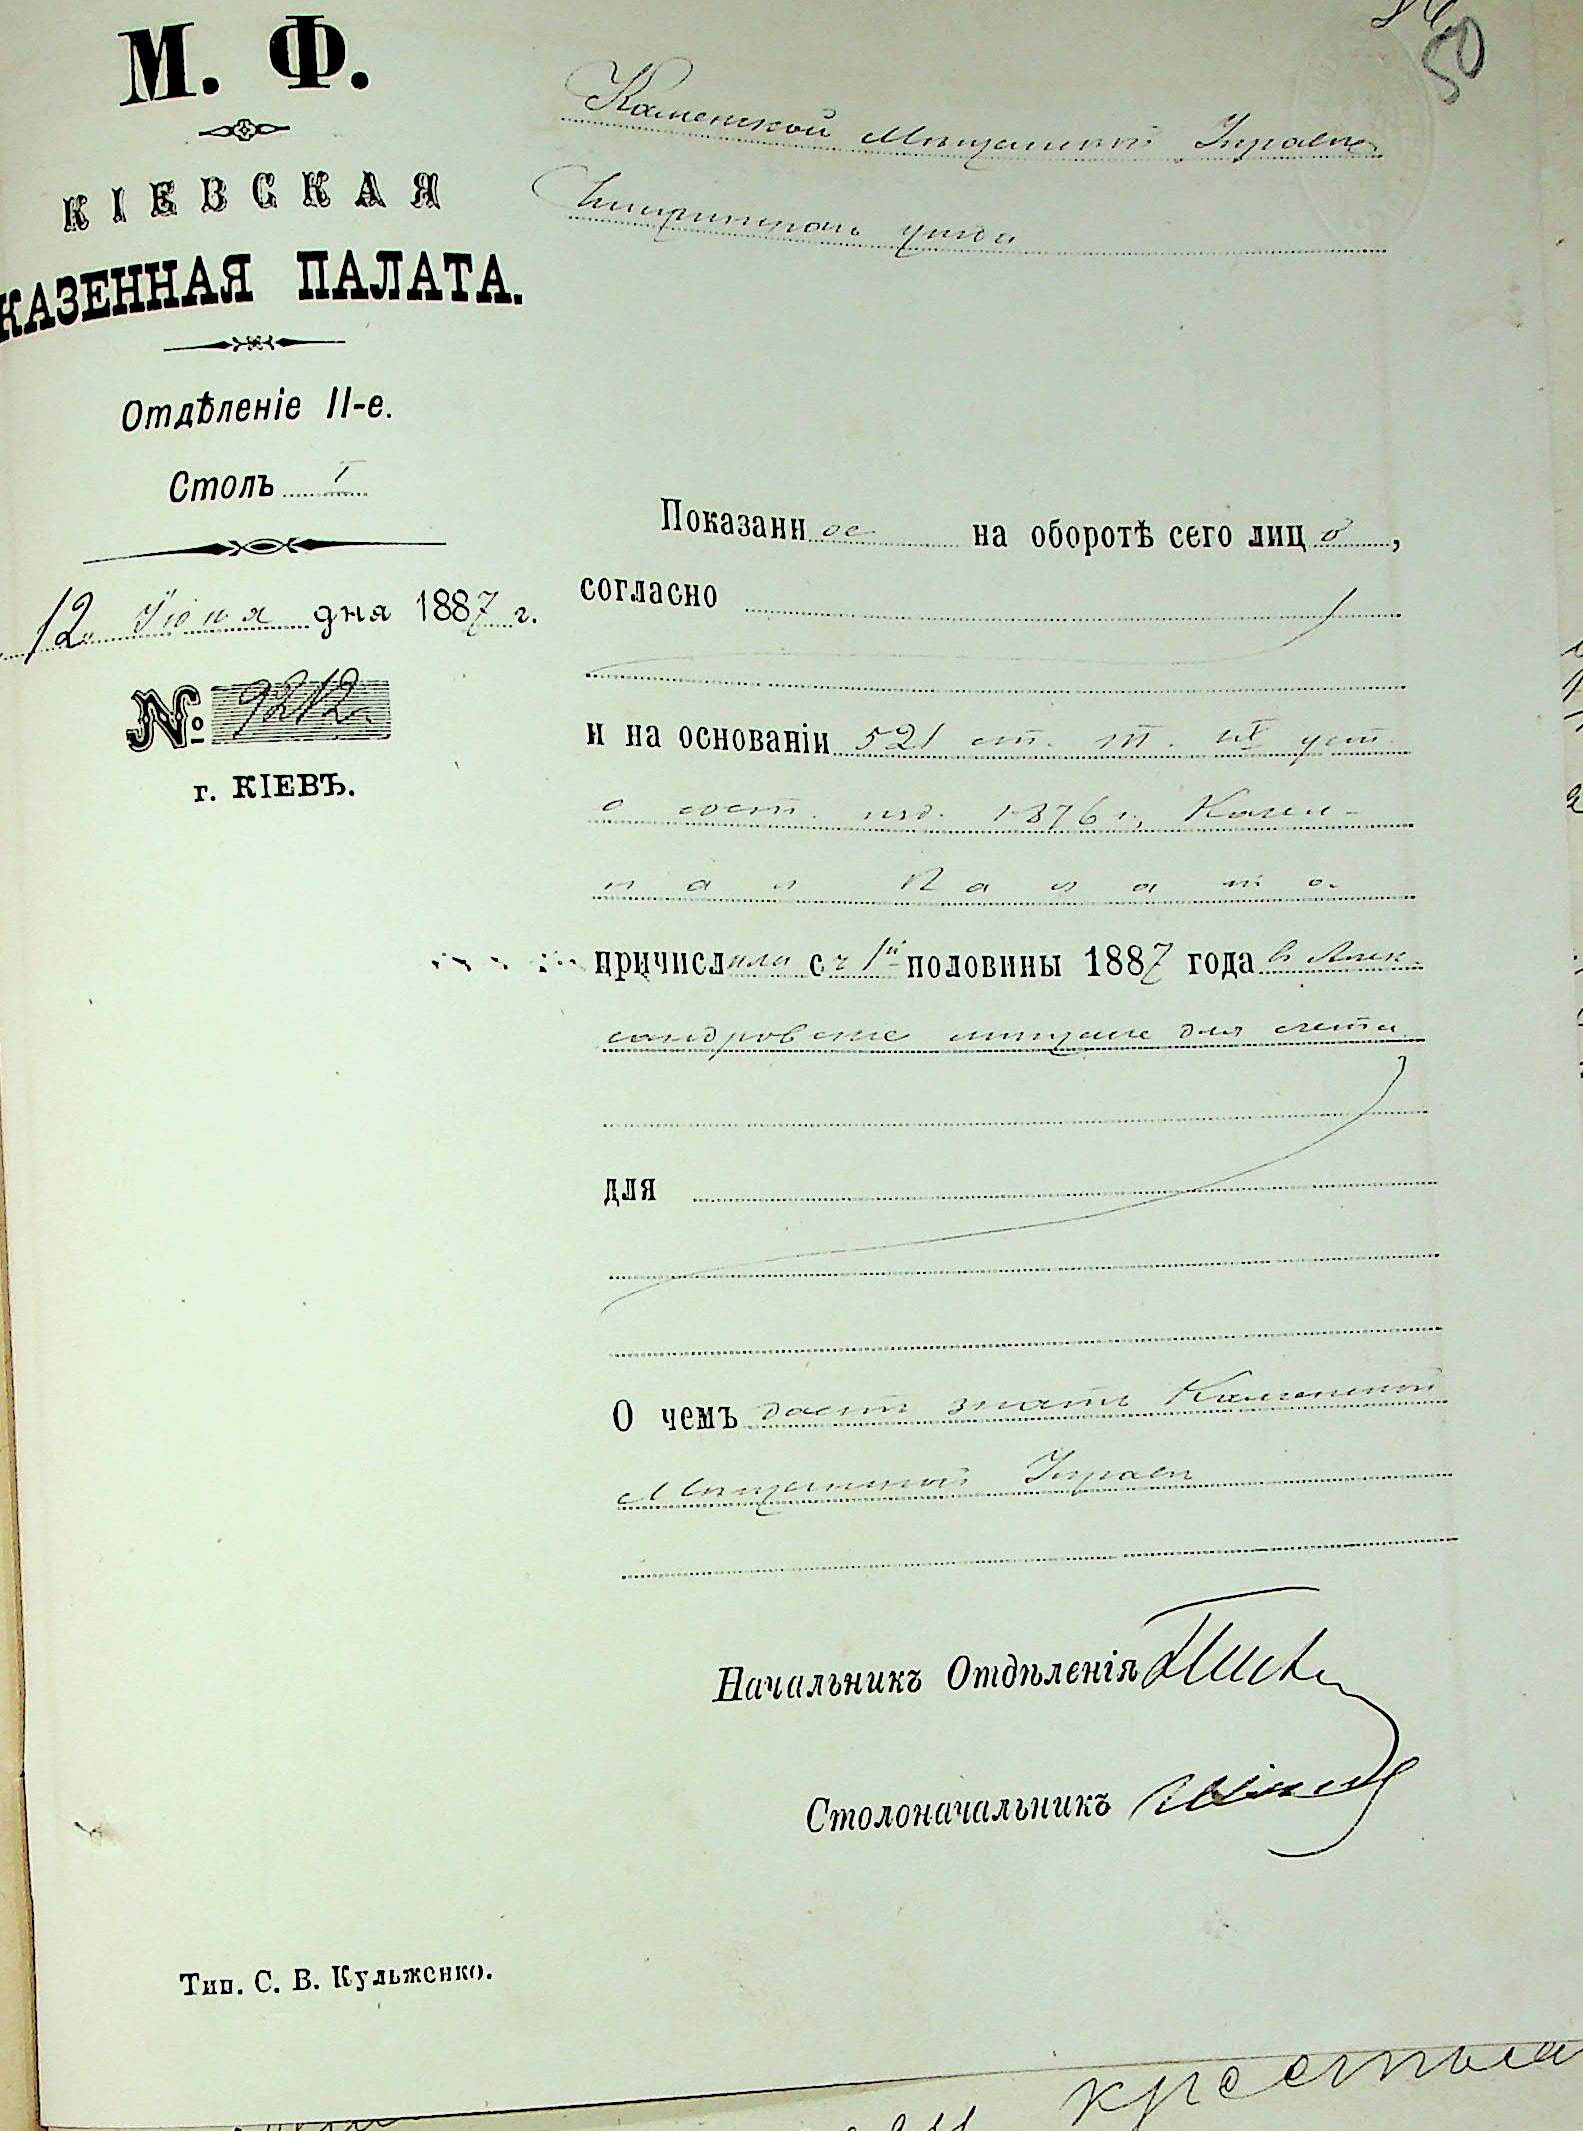 50
М. Ф.
Каменской Мѣщанской Управѣ
КІЕВСКАЯ
Чигиринскаго уѣзда
КАЗЕННАЯ ПАЛАТА.
Отдѣленіе II-е.
Столъ I
12 Іюня дня 1887 г.
№ 9212
г. КІЕВЪ.
Показанн ое на оборотѣ сего лиц о,
согласно
и на основаніи 521 ст. т. IX уст.
о сост. изд. 1876 г., Казен-
ная Палата
причисл ила съ 1й половины 1887 года въ Алек-
сандровские мѣщане для счета
для
О чемъ даетъ знать Каменской
Мѣщанской Управѣ
Начальникъ Отдѣленія
Столоначальникъ
Тип. С. В. Кульженко.